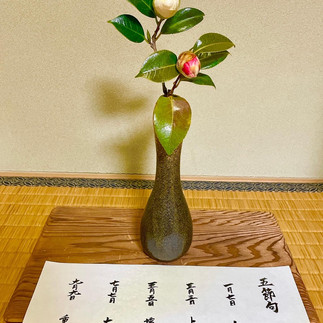 五節句
一月七日
三月三日 上
五月五日
七月七日 七
九月九日 重